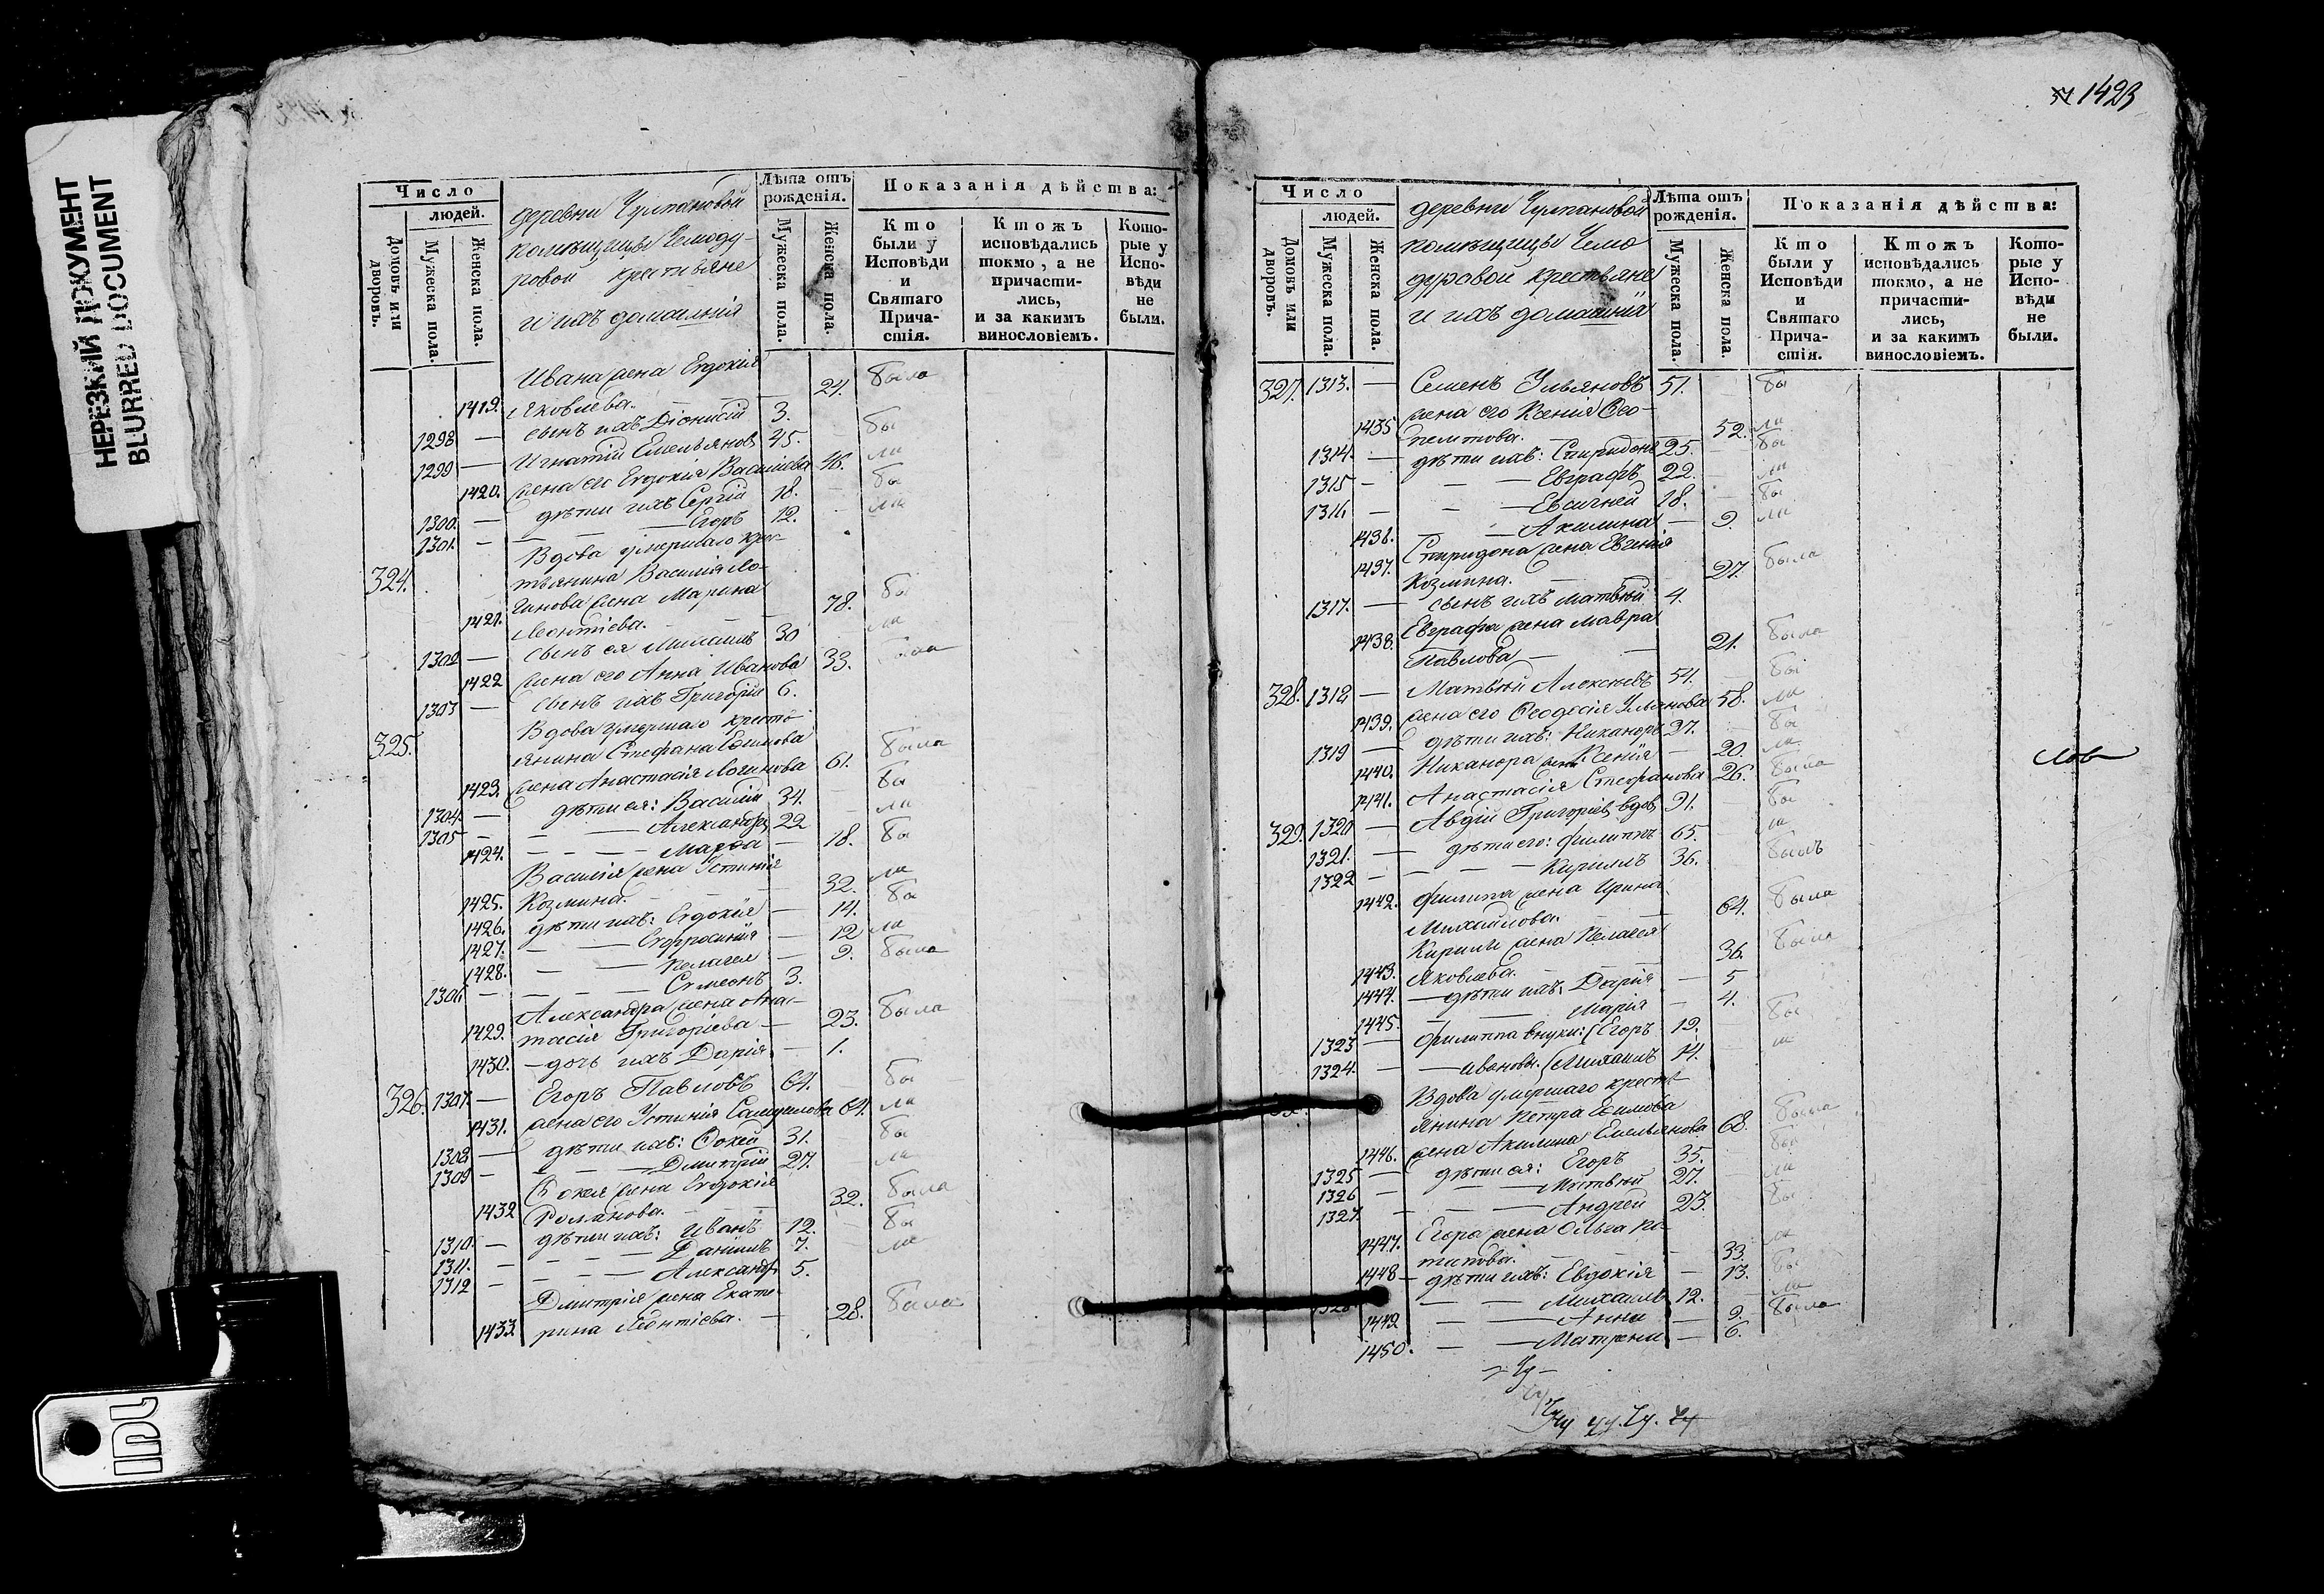 НЕРЕЗКИЙ ДОКУМЕНТ
BLURRED DOCUMENT
Число
людей.
Домовъ или дворовъ.
Мужеска пола.
Женска пола.
деревни Чулпановой
помѣщицы Чемоду-
ровой крестьяне
и ихъ домашнія
Лѣта отъ рожденія.
Мужеска пола.
Женска пола.
Показанія дѣйства:
Кто были у Исповѣди и Святаго Причастія.
Ктожъ исповѣдались токмо, а не причастились, и за какимъ винословіемъ.
Которые у Исповѣди не были.
Ивана жена Евдокія
1419. Яковлева. 24. была
1298 — сынъ ихъ Діонисій 3.
1299 — Игнатій Емельяновъ 45. бы
1420. жена его Евдокія Васильева 46. ли
1300. — дѣти ихъ Сергій 18. бы
1301. — — Егоръ 12. ли
324. Вдова умершаго крес-
тьянина Василія Ло-
гинова жена Марина
1421. Леонтіева. 78. бы
1302 — сынъ ея Михаилъ 30 ли
1422 жена его Анна Иванова 33. была
1303 — сынъ ихъ Григорій 6.
325. Вдова умершаго кресть-
янина Стефана Ефимова
1423. жена Анастасія Логинова 61. была
1304. — дѣти ея: Василій 34. бы
1305 — — Александръ 22 ли
1424. — Марфа — 18. бы
Василія жена Устинія
1425. Козмина. 32. ли
1426. дѣти ихъ: Евдокія — 14. бы
1427. — Евфросинія — 12 ли
1428. — Пелагея — 9. была
1306 — — Сумеонъ 3.
Александра жена Анас-
1429. тасія Григоріева — 23. была
1430. — дочь ихъ Дарія. — 1.
326. 1307. — Егоръ Павловъ 64. бы
1431. жена его Устинія Самуилова 64. ли
1308 — дѣти ихъ: Фокей 31. бы
1309 — — Дмитрій 27. ли
Фокея жена Евдокія
1432 Романова. 32. была
1310. — дѣти ихъ: Иванъ 12. бы
1311. — — Даніилъ 7. ли
1312 — — Александръ 5.
Дмитрія жена Екате-
1433 рина Леонтіева. — 28. была
1423
Число
людей.
Домовъ или дворовъ.
Мужеска пола.
Женска пола.
деревни Чулпановой
помѣщицы Чемо
дуровой крестьяне
и ихъ домашнія
Лѣта отъ рожденія.
Мужеска пола.
Женска пола.
Показанія дѣйства:
Кто были у Исповѣди и Святаго Причастія.
Ктожъ исповѣдались токмо, а не причастились, и за какимъ винословіемъ.
Которые у Исповѣди не были.
327. 1313. — Семенъ Ульяновъ 51. бы
жена его Ксенія Ѳео-
1435 пемптова. 52. ли
1314. — дѣти ихъ: Спиридонъ 25. бы
1315 — — Евграфъ 22. ли
1316 — — Евсигней 18. бы
1436. — Акилина — 9. ли
Спиридона жена Евгенія
1437. Козмина. 27. была
1317. — сынъ ихъ Матвѣй 4.
Евграфа жена Мавра
1438. Павлова — 21. была
328. 1318 — Матвѣй Алексѣевъ 54. бы
1439. жена его Ѳеодосія Ульянова 58. ли
1319 — дѣти ихъ: Никаноръ 37. бы
1440. Никанора жена Ксенія — 20. ли
1441. Анастасія Стефанова 26. была
329. 1320 — Авдій Григоріевъ вдовъ 91. бы
1321. — дѣти его: Филиппъ 65. ли
1322 — — Кирилъ 36. былъ
1442. Филиппа жена Ирина
Михайлова. 64. была
Кирила жена Пелагея
1443. Яковлева. 36. была
1444. — дѣти ихъ: Дарія — 5
1445. Марія — 4.
1323 — Филиппа внуки: Егоръ 19. бы
1324. — Ивановы. Михаилъ 14. ли
Вдова умершаго кресть-
янина Петра Ефимова
1446. жена Акилина Емельянова 68. была
1325 — дѣти ея: Егоръ 35. бы
1326 — — Матвѣй 27. ли
1327. — — Андрей 23. бы
1447. Егора жена Ольга По-
типова. 33. ли
1448 — дѣти ихъ: Евдокія — 13. бы
1328 — — Михаилъ 12. ли
1449 — — Анна — 9. была
1450. — — Матрена — 6.
Чу
Чу чу. Чу. Чу